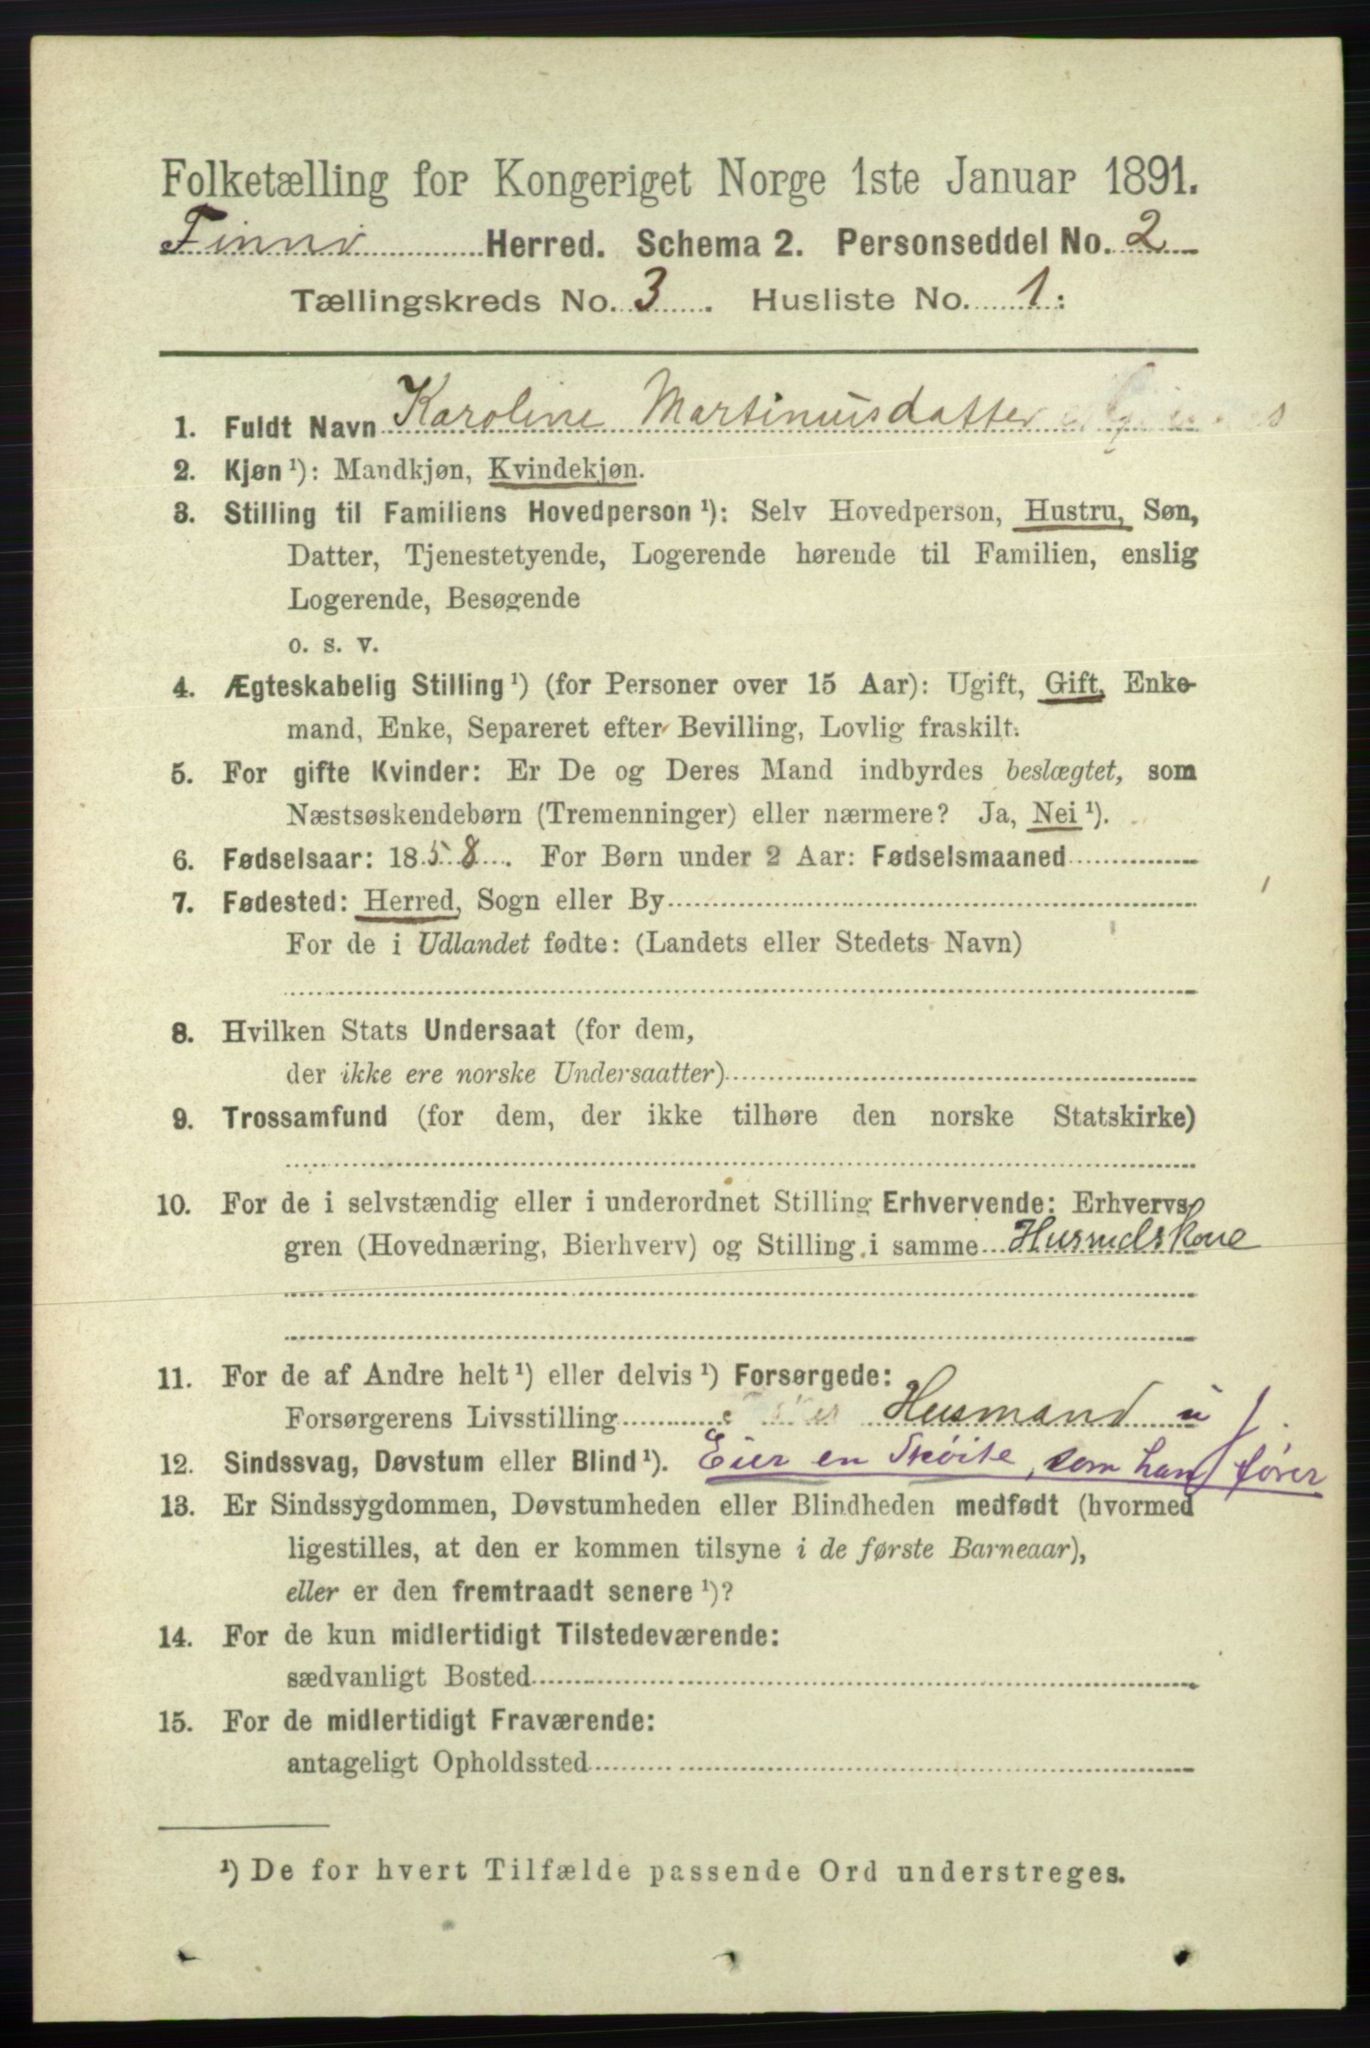 Folketælling for Kongeriget Norge 1ste Januar 1891.
Finnö Herred. Schema 2. Personseddel No. 2
Tællingskreds No. 3. Husliste No. 1:
1. Fuldt Navn Karoline Martinusdatter
2. Kjøn ¹): Mandkjøn, Kvindekjøn.
3. Stilling til Familiens Hovedperson ¹): Selv Hovedperson, Hustru, Søn,
Datter, Tjenestetyende, Logerende hørende til Familien, enslig
Logerende, Besøgende
o. s. v.
4. Ægteskabelig Stilling ¹) (for Personer over 15 Aar): Ugift, Gift, Enke-
mand, Enke, Separeret efter Bevilling, Lovlig fraskilt.
5. For gifte Kvinder: Er De og Deres Mand indbyrdes beslægtet, som
Næstsøskendebørn (Tremenninger) eller nærmere? Ja, Nei ¹).
6. Fødselsaar: 1858. For Børn under 2 Aar: Fødselsmaaned
7. Fødested: Herred, Sogn eller By
For de i Udlandet fødte: (Landets eller Stedets Navn)
8. Hvilken Stats Undersaat (for dem,
der ikke ere norske Undersaatter)
9. Trossamfund (for dem, der ikke tilhøre den norske Statskirke)
10. For de i selvstændig eller i underordnet Stilling Erhvervende: Erhvervs-
gren (Hovednæring, Bierhverv) og Stilling i samme Husmdskone
11. For de af Andre helt ¹) eller delvis ¹) Forsørgede:
Forsørgerens Livsstilling Husmand u j.
12. Sindssvag, Døvstum eller Blind ¹). Eier en Sköite, som han förer
13. Er Sindssygdommen, Døvstumheden eller Blindheden medfødt (hvormed
ligestilles, at den er kommen tilsyne i de første Barneaar),
eller er den fremtraadt senere ¹)?
14. For de kun midlertidigt Tilstedeværende:
sædvanligt Bosted
15. For de midlertidigt Fraværende:
antageligt Opholdssted
¹) De for hvert Tilfælde passende Ord understreges.